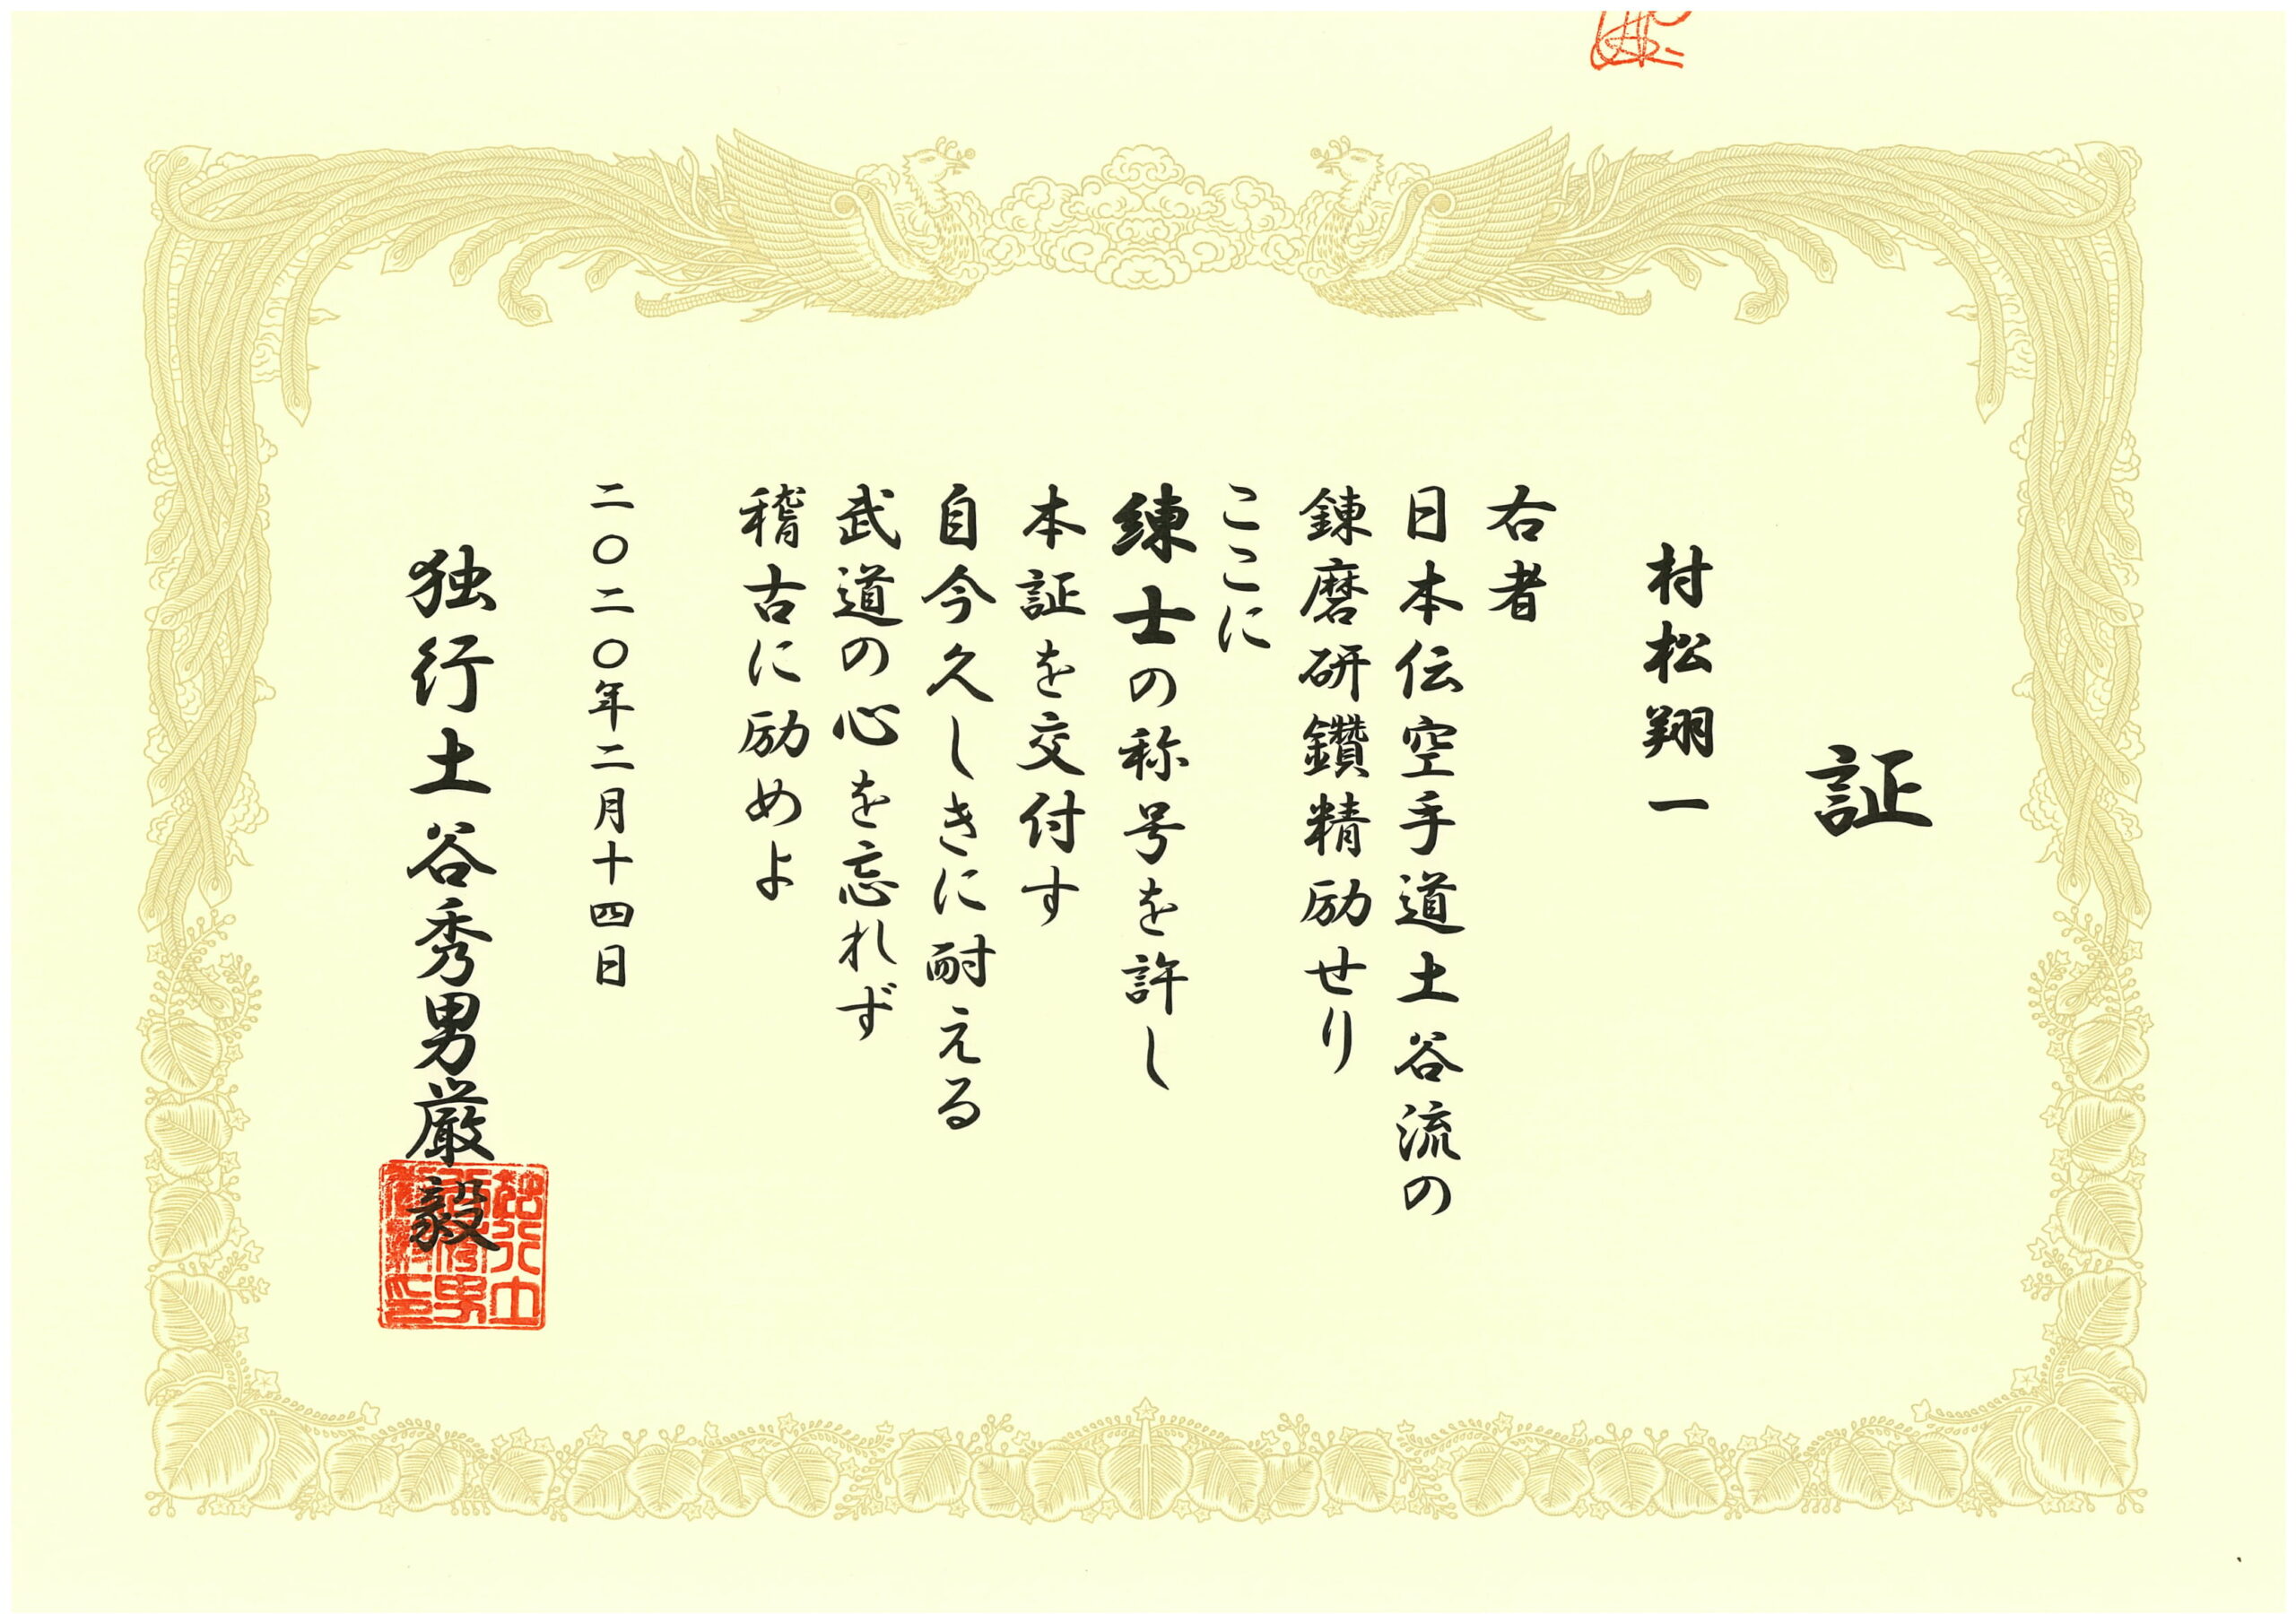 証
村松翔一
右者
日本伝空手道土谷流の
錬磨研鑽精励せり
ここに
練士の称号を許し
本証を交付す
自今久しきに耐える
武道の心を忘れず
稽古に励めよ
二〇二〇年二月十四日
独行土谷秀男厳毅